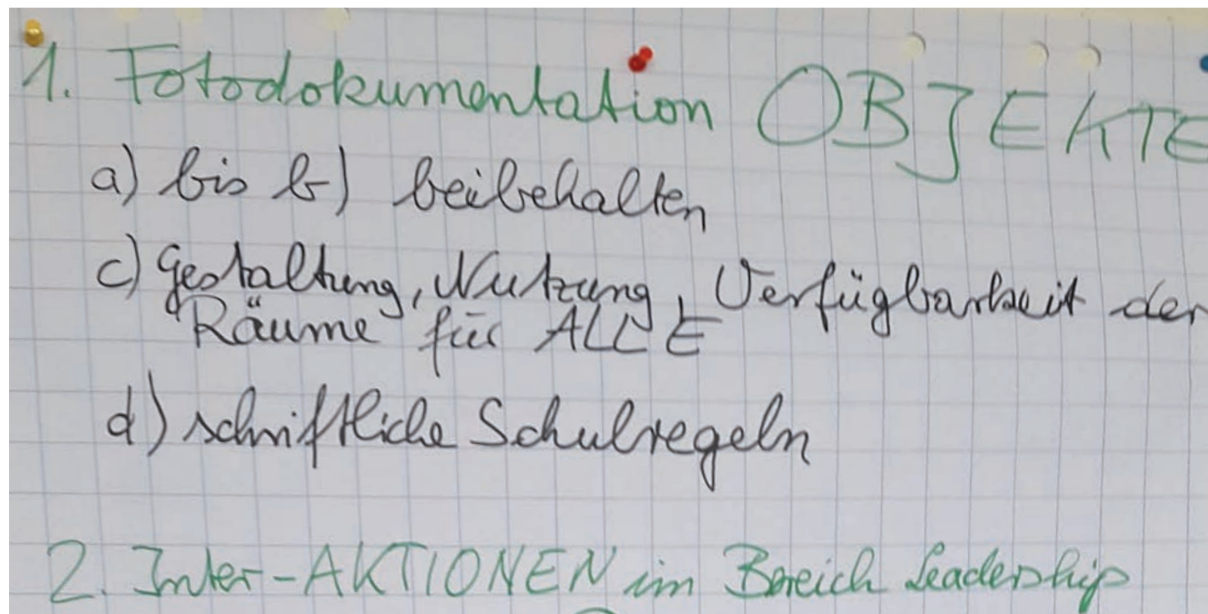 1. Fotodokumentation OBJEKTE
a) bis b) beibehalten
c) Gestaltung, Nutzung, Verfügbarkeit der
Räume für ALLE
d) schriftliche Schulregeln
2. Inter-AKTIONEN im Bereich Leadership